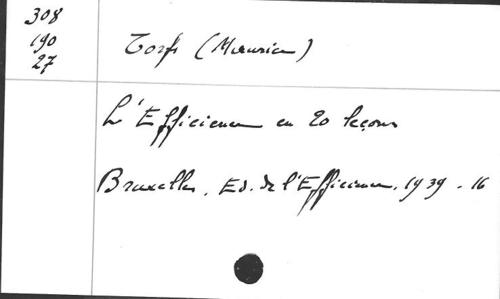 308
190
27
Torfs (Maurice)
L'Efficience en 20 leçons
Bruxelles, Ed. de l'Efficience, 1939 - 16